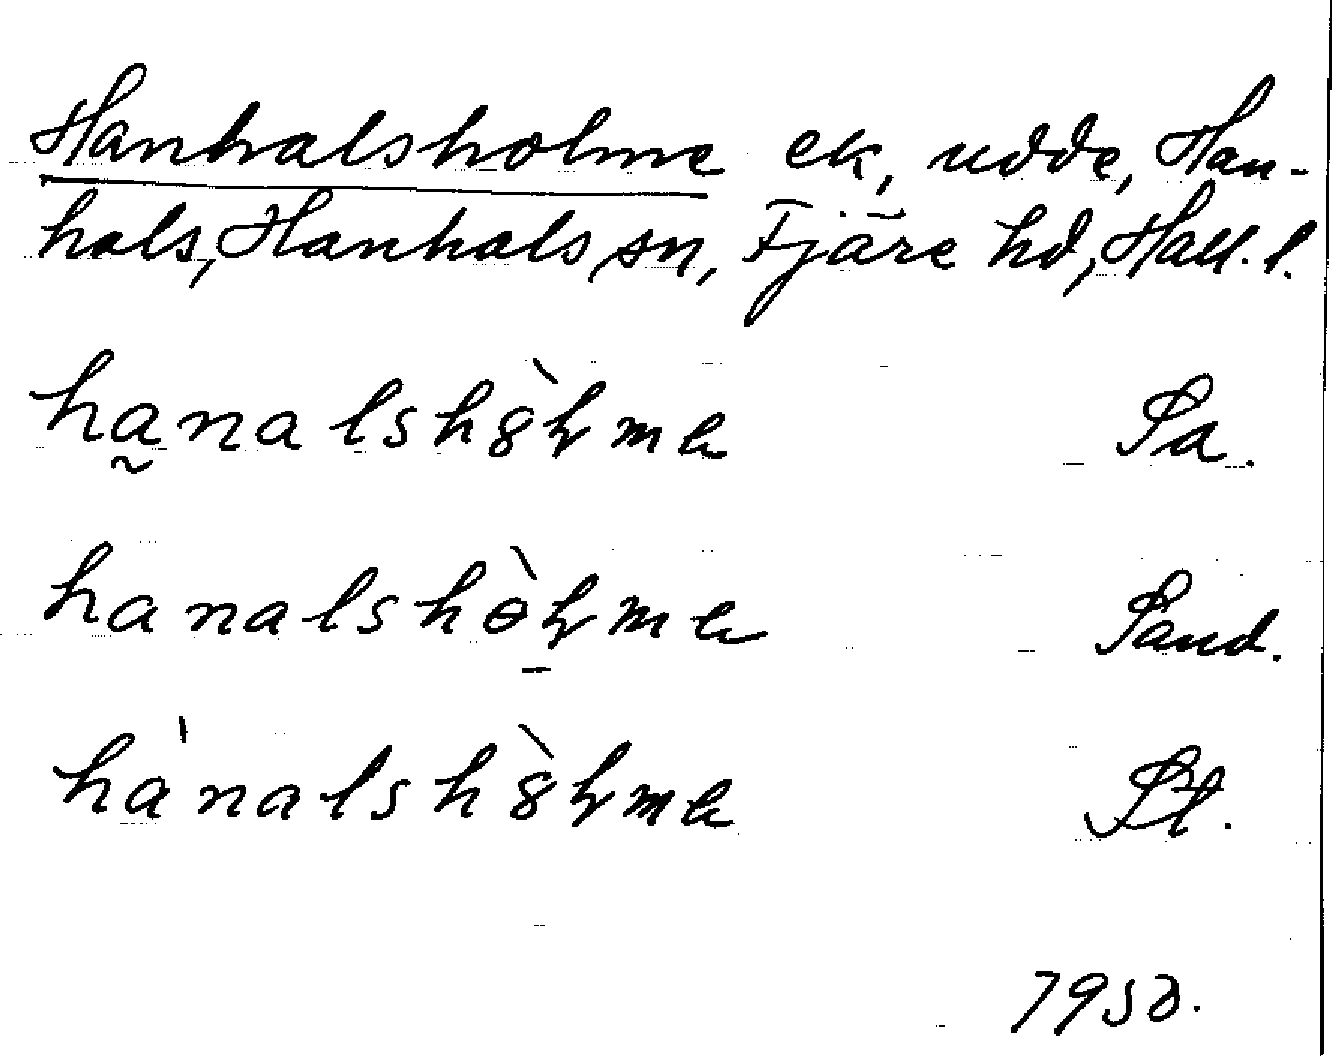 Hanhalsholme ek, udde, Han-
hals, Hanhals sn, Fjäre hd, Hall. l.
ha̰nalshȣ̀ɫmɘ Sa.
hanalshɵ̀ɫmɘ Sand.
hànalshȣ̀ɫmɘ St.
1950.